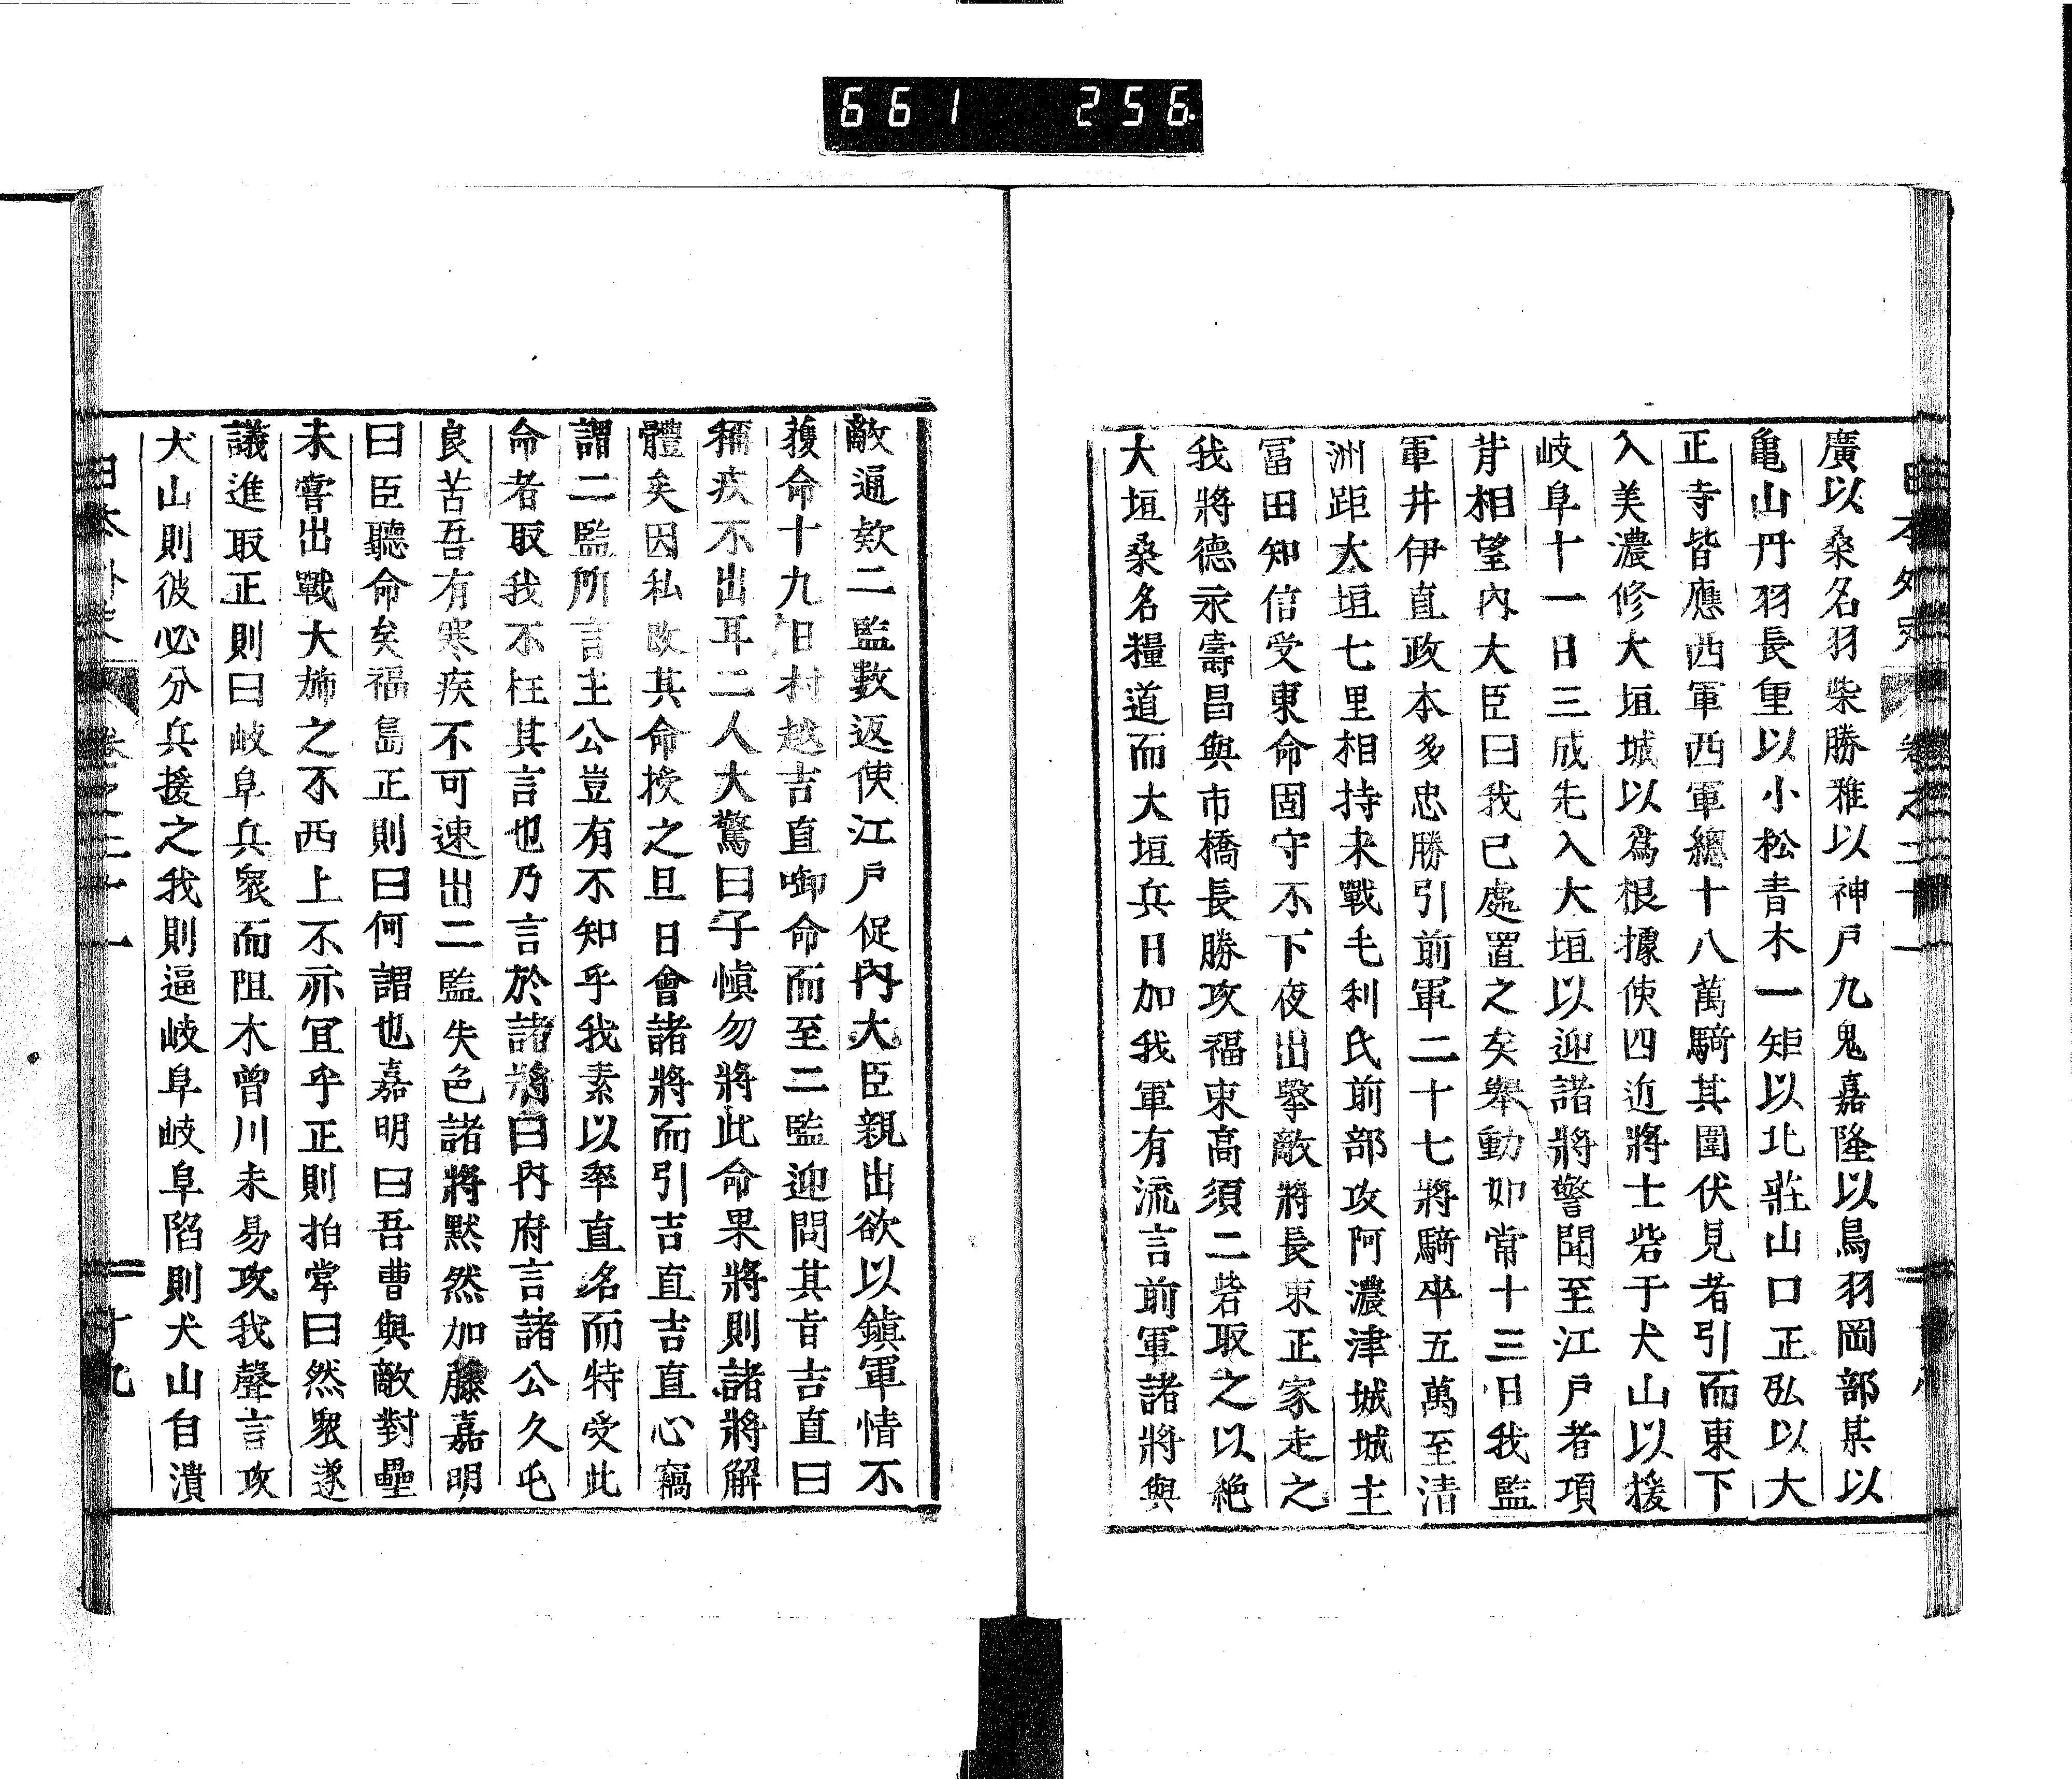 661 256
廣以桑名羽柴勝雅以神戸九鬼嘉隆以鳥羽岡部某以
亀山丹羽長重以小松青木一矩以北莊山口正弘以大
正寺皆應西軍西軍總十八萬騎其圍伏見者引而東下
入美濃修大垣城以爲根據使四近將士砦于犬山以援
岐阜十一日三成先入大垣以迎諸將警聞至江戸者項
背相望內大臣曰我已處置之矣舉動如常十三日我監
軍井伊直政本多忠勝引前軍二十七將騎卒五萬至清
洲距大垣七里相持未戰毛利氏前部攻阿濃津城城主
冨田知信受東命固守不下夜出擊敵將長束正家走之
我將德永壽昌與市橋長勝攻福東高須二砦取之以絶
大垣桑名糧道而大垣兵日加我軍有流言前軍諸將與
敵通欵二監數返使江戸促內大臣親出欲以鎭軍情不
獲命十九日村越吉直啣命而至二監迎問其旨吉直曰
稱疾不出耳二人大驚曰子愼勿將此命果將則諸將解
體矣因私改其命授之旦日會諸將而引吉直吉直心竊
謂二監所言主公豈有不知乎我素以率直名而特受此
命者取我不枉其言也乃言於諸將曰內府言諸公久屯
良苦吾有寒疾不可速出二監失色諸將默然加藤嘉明
曰臣聽命矣福島正則曰何謂也嘉明曰吾曹與敵對壘
未嘗出戰大旆之不西上不亦宜乎正則拍掌曰然衆遂
議進取正則曰岐阜兵衆而阻木曾川未易攻我聲言攻
犬山則彼必分兵援之我則逼岐阜岐阜陷則犬山自潰
日本外史 卷之二十一 十九